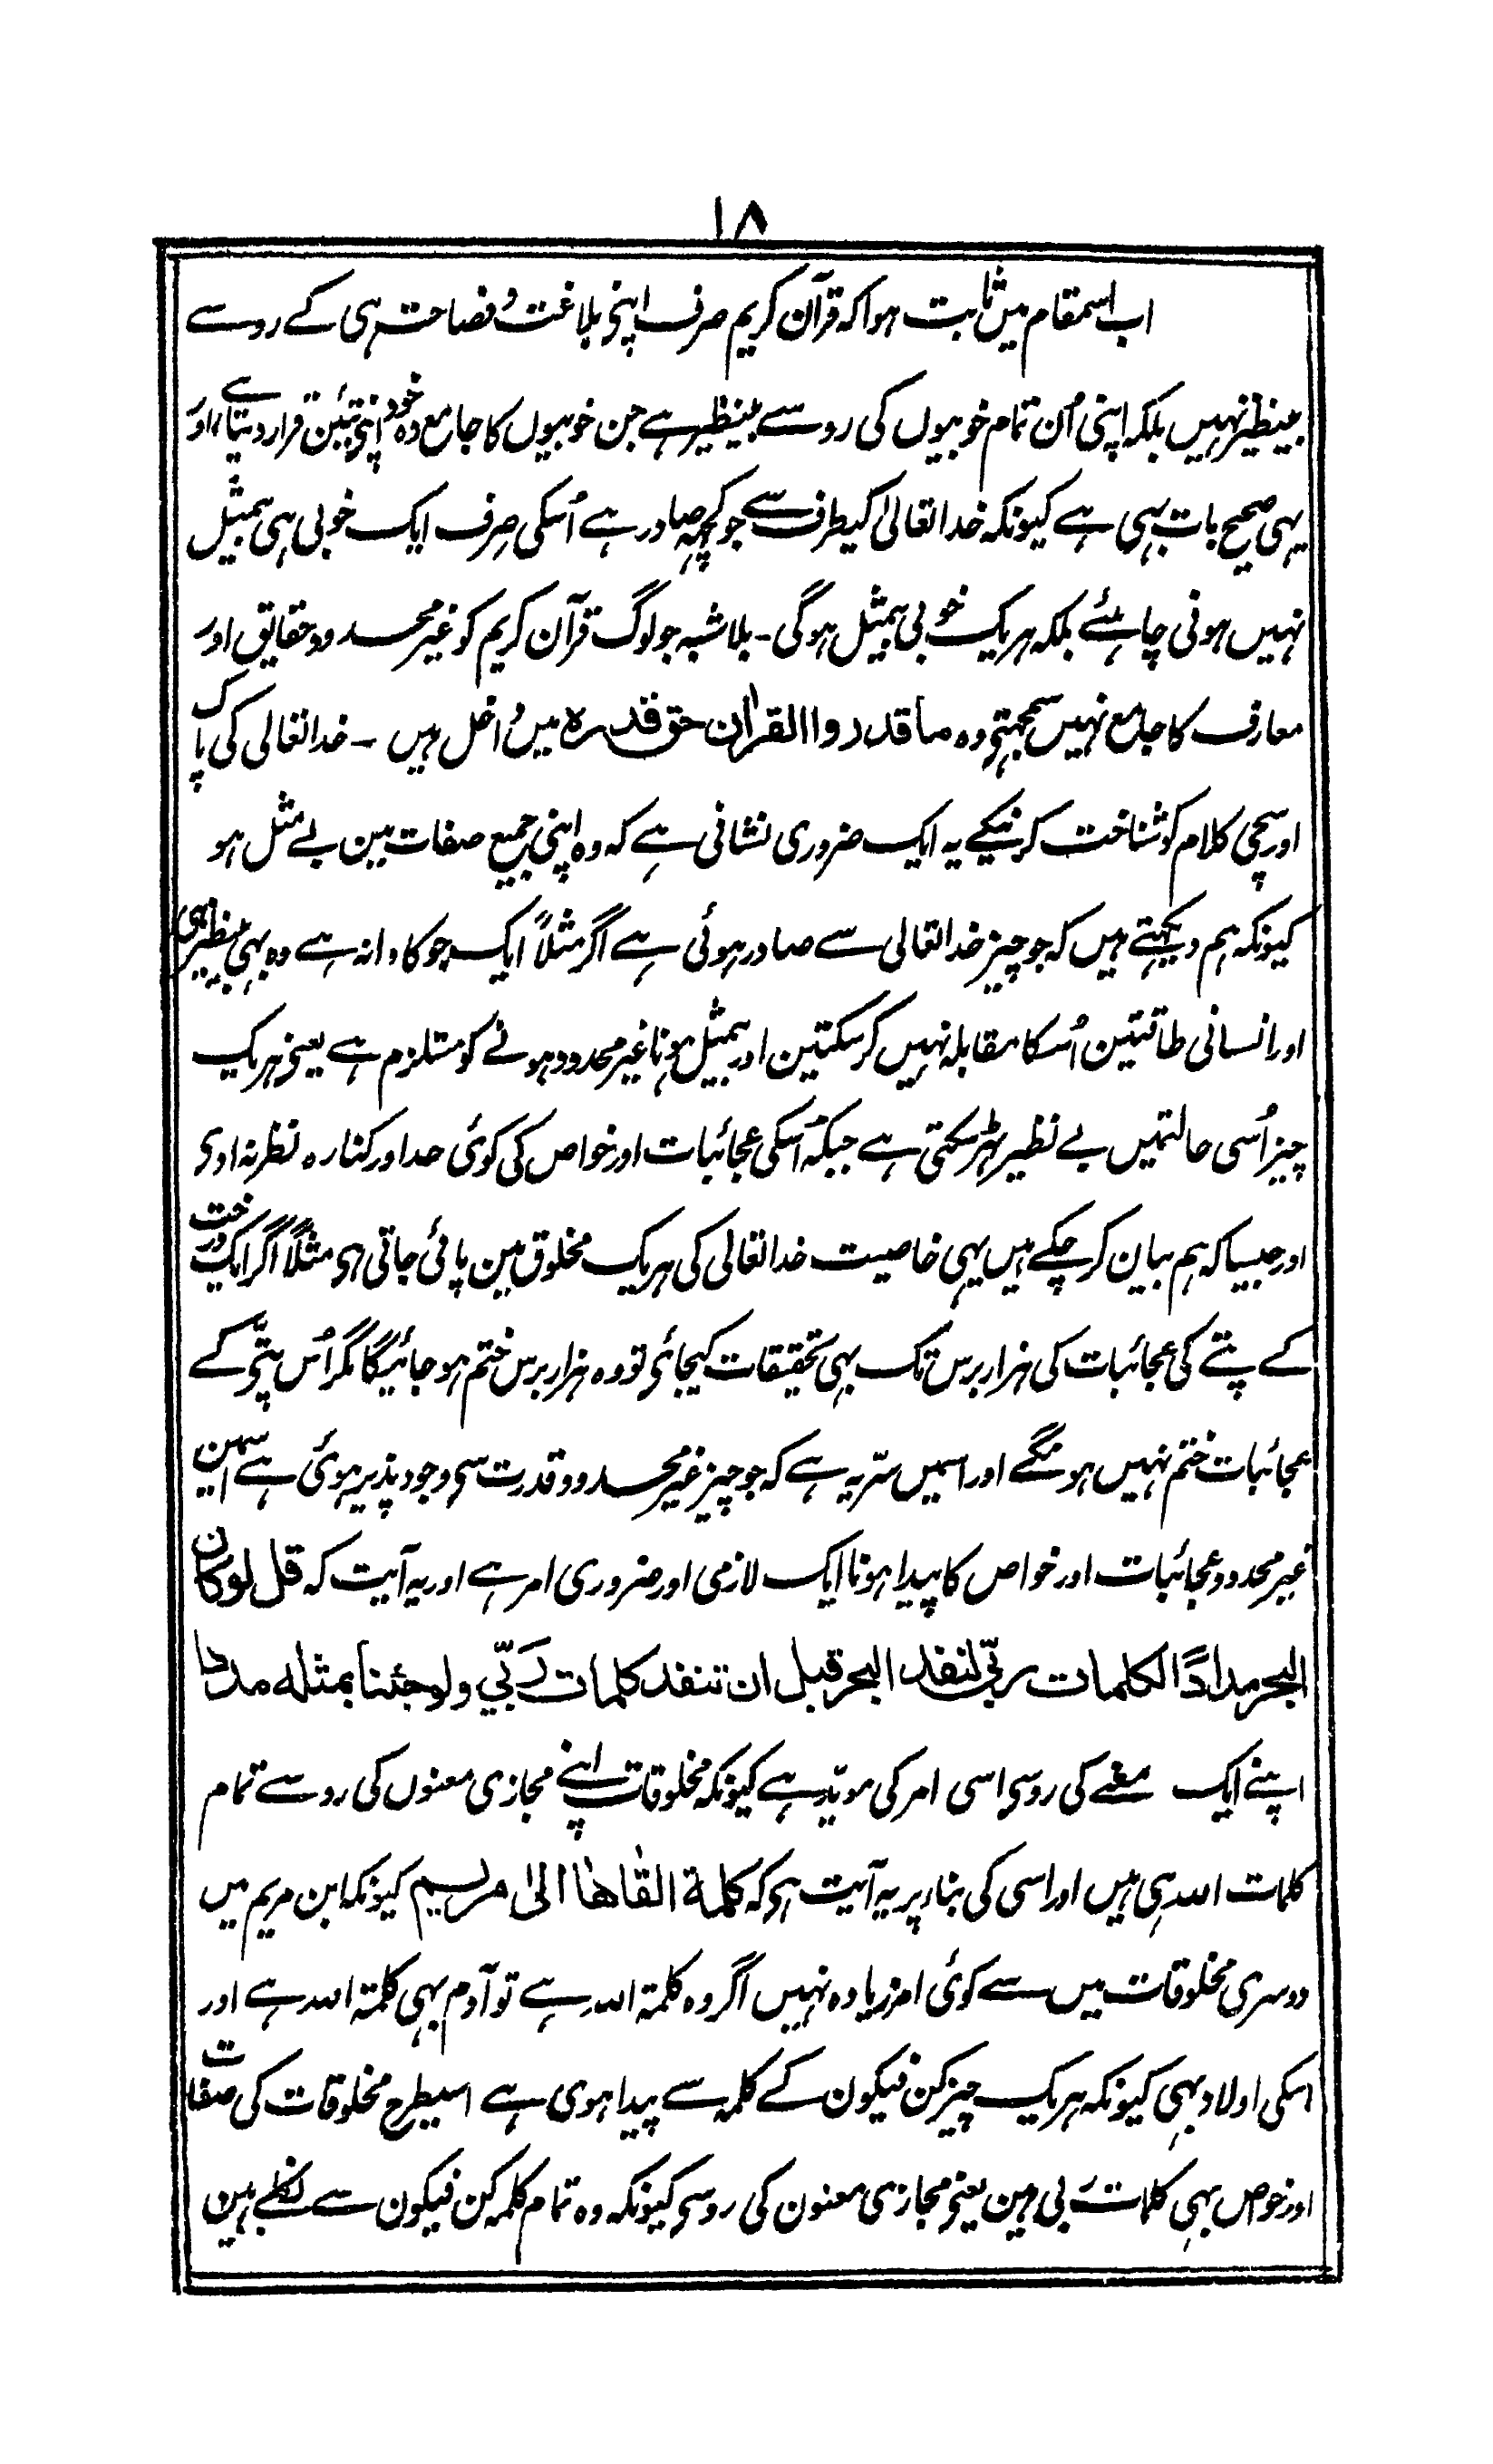 ۱۸
اب اسمقام میں ثابت ہوا کہ قرآن کریم صرف اپنی بلاغت و فصاحت ہی کے روسے
بینظیر نہیں بلکہ اپنی اُن تمام خوبیوں کی روسے بینظیر ہے جن خوبیوں کا جامع وہ خود اپنی تئین قرار دیتا ہے اور
یہی صحیح بات بہی ہے کیونکہ خدا تعالیٰ کیطرف سے جو کچہہ صادر ہے اُسکی صرف ایک خوبی ہی بیمثیل
نہیں ہونی چاہئے بلکہ ہریک خوبی بیمثیل ہوگی۔ بلا شبہ جو لوگ قرآن کریم کو غیر محدود حقایق اور
معارف کا جامع نہیں سمجہتے وہ ما قدروا القراٰن حق قدرہ میں داخل ہیں ۔ خدا تعالی کی پاک
اور سچی کلام کو شناخت کرنیکے یہ ایک ضروری نشانی ہے کہ وہ اپنی جمیع صفات مین بے مثل ہو
کیونکہ ہم دیکہتے ہیں کہ جو چیز خدا تعالی سے صادر ہوئی ہے اگر مثلاً ایک جو کا دانہ ہے وہ بہی بینظیر ہی
اور انسانی طاقتین اُسکا مقابلہ نہیں کر سکتین اور بیمثیل ہونا غیر محدود ہونے کو مستلزم ہے یعنے ہریک
چیز اُسی حالتمیں بے نظیر ٹہر سکتی ہے جبکہ اُسکی عجائبات اور خواص کی کوئی حد اور کنارہ نظر نہ اوی
اور جیسا کہ ہم بیان کر چکے ہیں یہی خاصیت خدا تعالی کی ہریک مخلوق مین پائی جاتی ہی مثلاً اگر ایک درخت
کے پتے کی عجائبات کی ہزار برس تک بہی تحقیقات کیجائی تو وہ ہزار برس ختم ہو جائیگا مگر اُس پتے کے
عجائبات ختم نہیں ہونگے اور اسمیں سرّ یہ ہے کہ جو چیز غیر محدود قدرت سی وجود پذیر ہوئی ہے اسمین
غیر محدود عجائبات اور خواص کا پیدا ہونا ایک لازمی اور ضروری امر ہے اور یہ آیت کہ قل لو کان
البحر مدادًا لکلمات ربّی لنفد البحر قبل ان تنفد کلمات رَبّی ولو جئنا بمثلہ مددا
اپنے ایک معنے کی روسی اسی امر کی مویّد ہے کیونکہ مخلوقات اپنے مجازی معنوں کی روسے تمام
کلمات اللہ ہی ہیں اور اسی کی بناء پر یہ آیت ہی کہ کلمۃ القاھا الیٰ مریم کیونکہ ابن مریم میں
دوسری مخلوقات میں سے کوئی امر زیادہ نہیں اگر وہ کلمۃ اللہ ہے تو آدم بہی کلمۃ اللہ ہے اور
اسکی اولاد بہی کیونکہ ہریک چیز کن فیکون کے کلمہ سے پیدا ہوی ہے اسیطرح مخلوقات کی صفات
اور خواص بہی کلمات ربی ہین یعنی مجازی معنون کی روسی کیونکہ وہ تمام کلمہ کن فیکون سے نکلے ہین